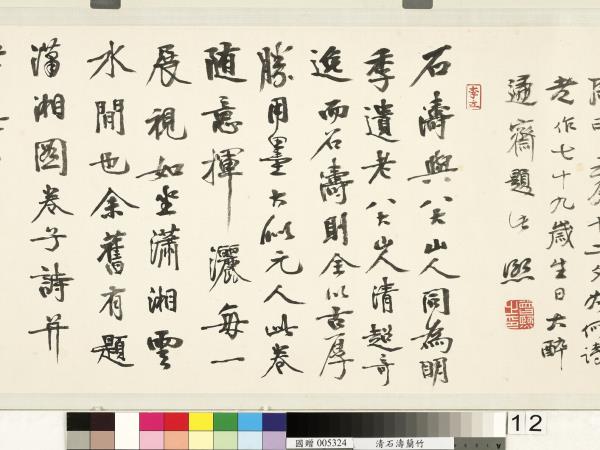 老作七十九歲生日大醉
遜齋題 
石濤與八大山人同為明
季遺老八大山人清超奇
逸而石濤則全以古厚
勝用墨大似元人此卷
隨意揮灑每一
展視如坐瀟湘雲
水間也余舊有題
瀟湘圖卷子詩并
國贈 005324
清石濤蘭竹
12